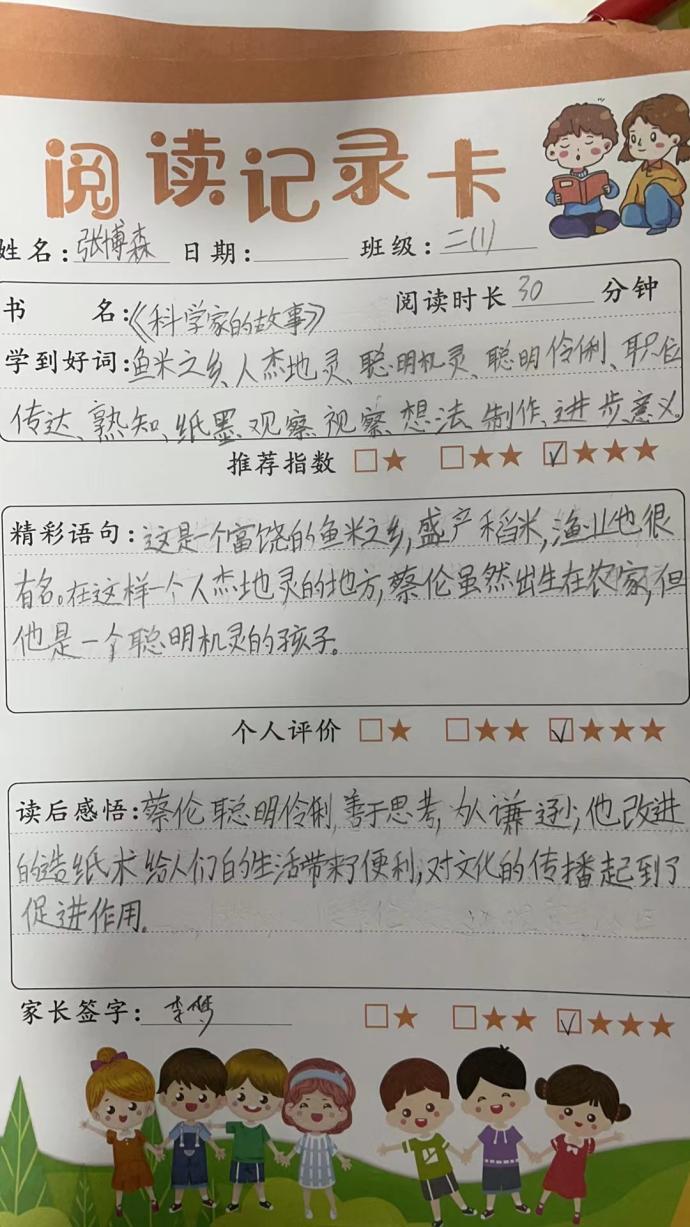 阅读记录卡
姓名:张博森 日期: 班级:二(1)
书 名:《科学家的故事》 阅读时长 30 分钟
学到好词:鱼米之乡、人杰地灵、聪明机灵、聪明伶俐、职位
传达、熟知、纸墨、观察、视察、想法、制作、进步、意义。
推荐指数 □★ □★★ ☑★★★
精彩语句:这是一个富饶的鱼米之乡,盛产稻米,渔业也很
有名。在这样一个人杰地灵的地方,蔡伦虽然出生在农家,但
他是一个聪明机灵的孩子。
个人评价 □★ □★★ ☑★★★
读后感悟:蔡伦聪明伶俐,善于思考,为人谦逊;他改进
的造纸术给人们的生活带来了便利;对文化的传播起到了
促进作用。
家长签字: 李 □★ □★★ ☑★★★